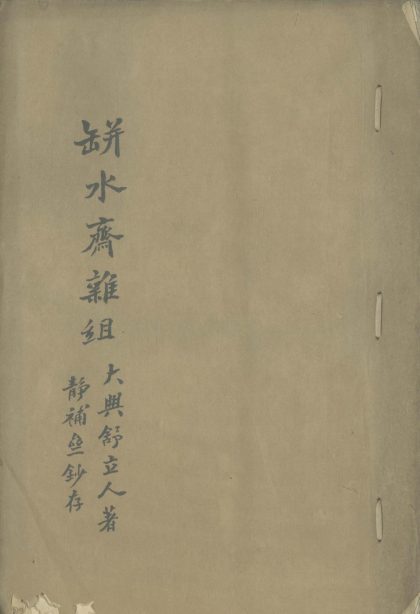 缾水齋雜組
大興舒立人著
靜補𠫤鈔存